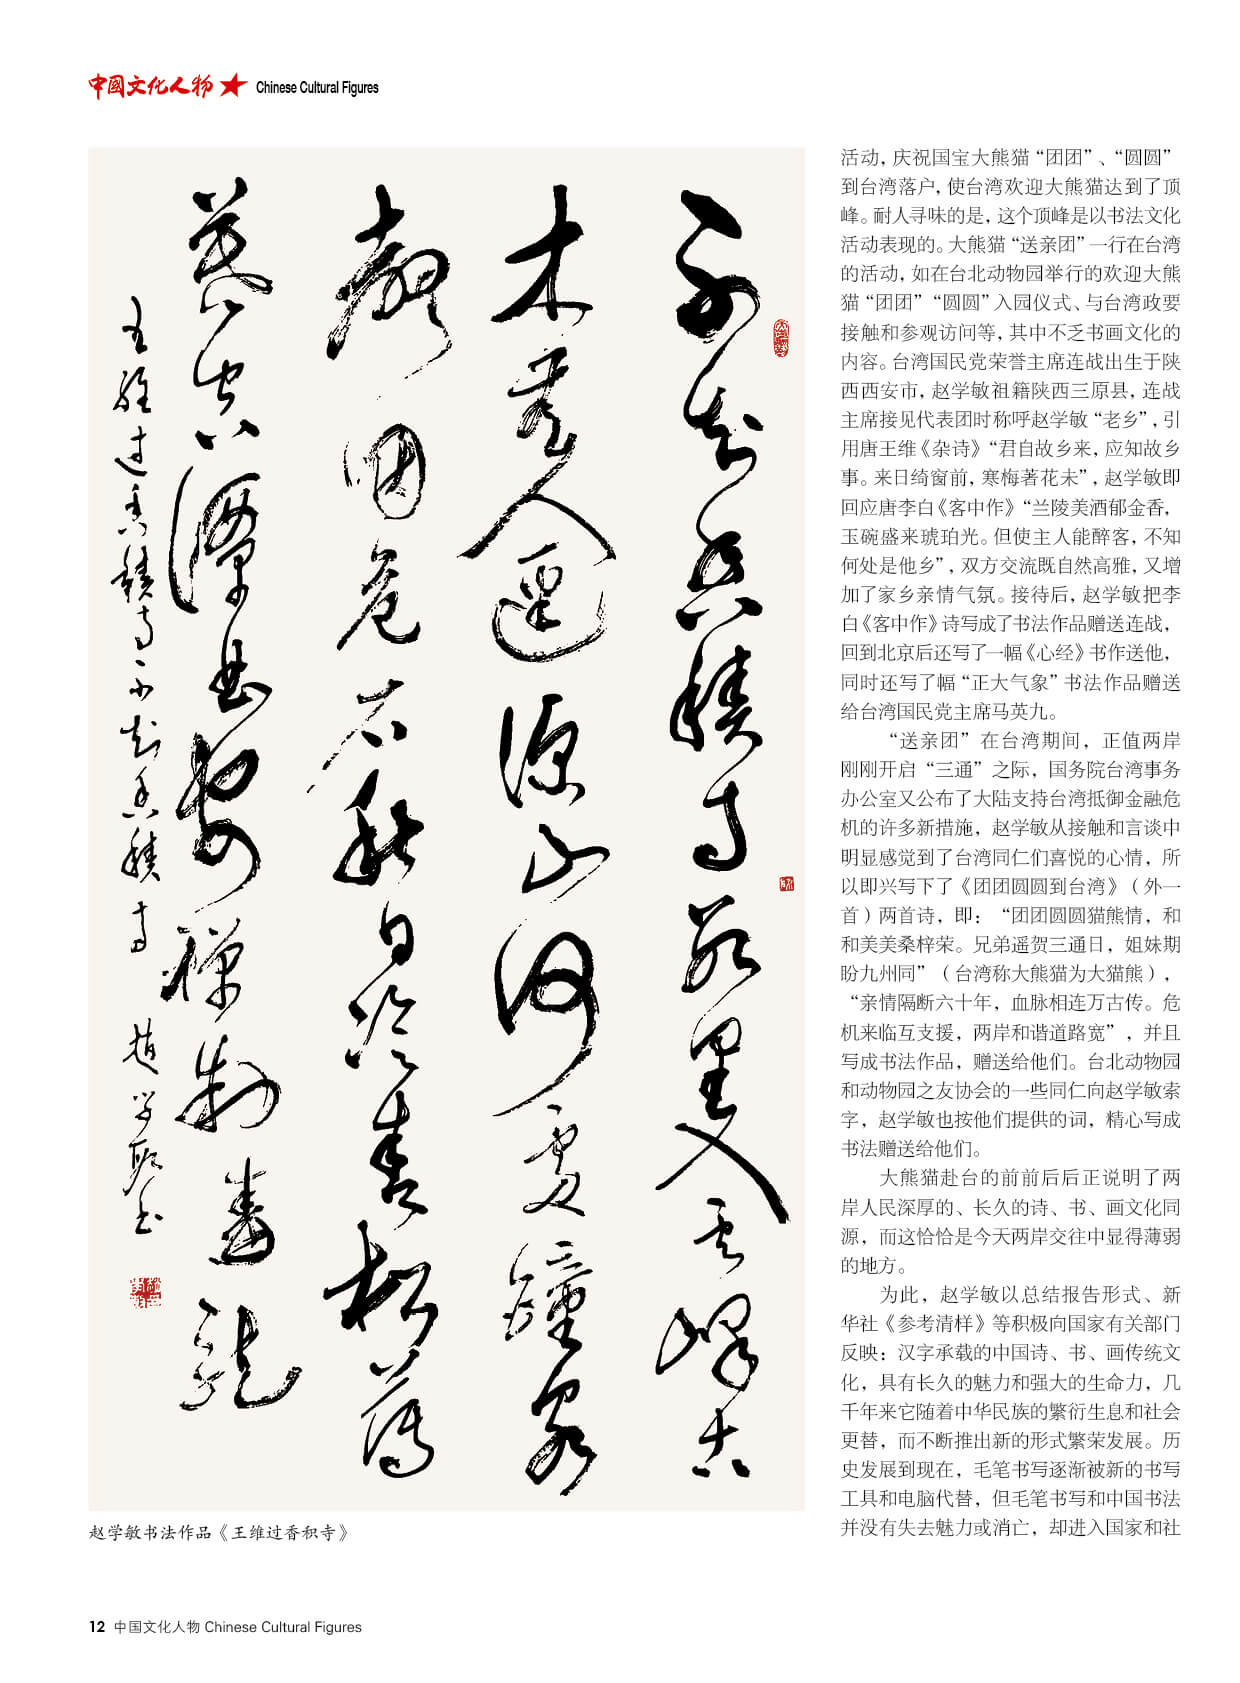 中國文化人物 Chinese Cultural Figures
不知香積寺數里入雲峰古
木無人逕深山何處鐘泉
聲咽危石日冷青松薄
暮空潭曲安禪制毒龍
王維過香積寺不知香積寺 趙學敏書
赵学敏书法作品《王维过香积寺》
活动，庆祝国宝大熊猫“团团”、“圆圆”
到台湾落户，使台湾欢迎大熊猫达到了顶
峰。耐人寻味的是，这个顶峰是以书法文化
活动表现的。大熊猫“送亲团”一行在台湾
的活动，如在台北动物园举行的欢迎大熊
猫“团团”“圆圆”入园仪式、与台湾政要
接触和参观访问等，其中不乏书画文化的
内容。台湾国民党荣誉主席连战出生于陕
西西安市，赵学敏祖籍陕西三原县，连战
主席接见代表团时称呼赵学敏“老乡”，引
用唐王维《杂诗》“君自故乡来，应知故乡
事。来日绮窗前，寒梅著花未”，赵学敏即
回应唐李白《客中作》“兰陵美酒郁金香，
玉碗盛来琥珀光。但使主人能醉客，不知
何处是他乡”，双方交流既自然高雅，又增
加了家乡亲情气氛。接待后，赵学敏把李
白《客中作》诗写成了书法作品赠送连战，
回到北京后还写了一幅《心经》书作送他，
同时还写了幅“正大气象”书法作品赠送
给台湾国民党主席马英九。
“送亲团”在台湾期间，正值两岸
刚刚开启“三通”之际，国务院台湾事务
办公室又公布了大陆支持台湾抵御金融危
机的许多新措施，赵学敏从接触和言谈中
明显感觉到了台湾同仁们喜悦的心情，所
以即兴写下了《团团圆圆到台湾》（外一
首）两首诗，即：“团团圆圆猫熊情，和
和美美桑梓荣。兄弟遥贺三通日，姐妹期
盼九州同”（台湾称大熊猫为大猫熊），
“亲情隔断六十年，血脉相连万古传。危
机来临互支援，两岸和谐道路宽”，并且
写成书法作品，赠送给他们。台北动物园
和动物园之友协会的一些同仁向赵学敏索
字，赵学敏也按他们提供的词，精心写成
书法赠送给他们。
大熊猫赴台的前前后后正说明了两
岸人民深厚的、长久的诗、书、画文化同
源，而这恰恰是今天两岸交往中显得薄弱
的地方。
为此，赵学敏以总结报告形式、新
华社《参考清样》等积极向国家有关部门
反映：汉字承载的中国诗、书、画传统文
化，具有长久的魅力和强大的生命力，几
千年来它随着中华民族的繁衍生息和社会
更替，而不断推出新的形式繁荣发展。历
史发展到现在，毛笔书写逐渐被新的书写
工具和电脑代替，但毛笔书写和中国书法
并没有失去魅力或消亡，却进入国家和社
12 中国文化人物 Chinese Cultural Figures